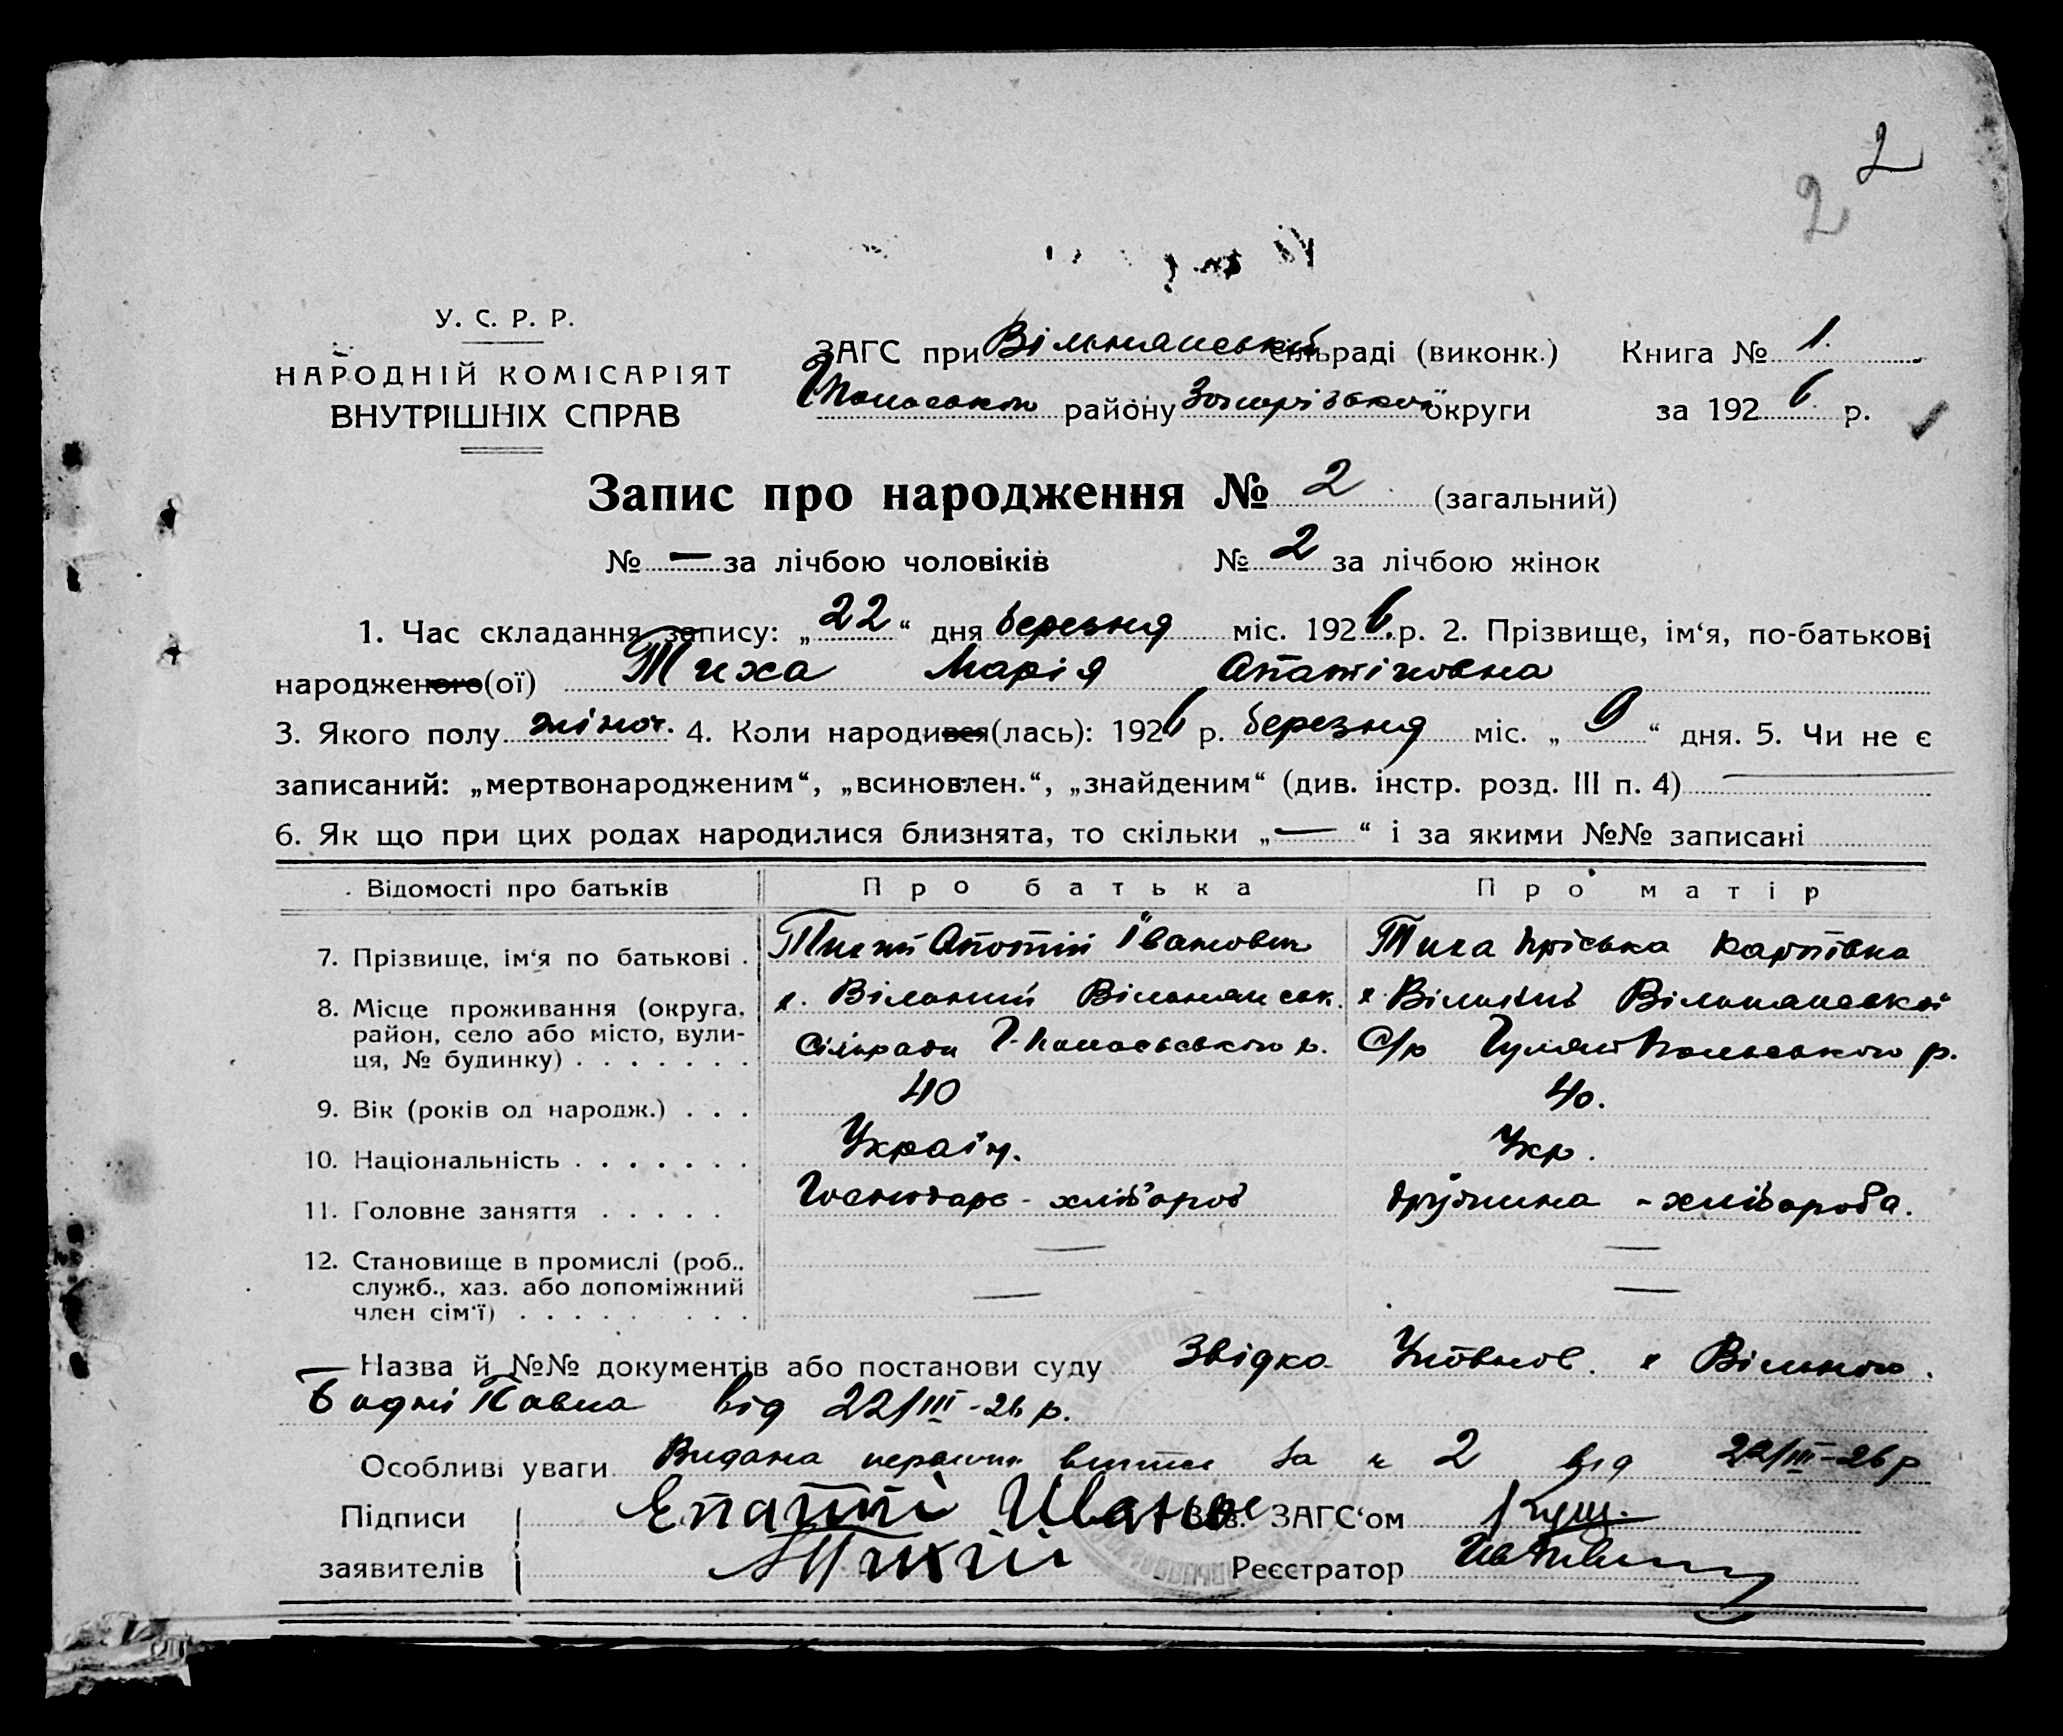 2
2
У. С. Р. Р.
НАРОДНІЙ КОМІСАРІЯТ
ВНУТРІШНІХ СПРАВ
ЗАГС при Вільнянській сільраді (виконк.) Книга № 1.
району Запорізької округи за 1926 р.
Запис про народження № 2 (загальний)
№ — за лічбою чоловіків № 2 за лічбою жінок
1. Час складання запису: „22“ дня березня міс. 1926 р. 2. Прізвище, ім‘я, по-батькові
народженого(ої) Тиха Марія Опатіновна
3. Якого полу жіноч. 4. Коли народився(лась): 1926 р. березня міс. „9“ дня. 5. Чи не є
записаний: „мертвонародженим“, „всиновлен.“, „знайденим“ (див. інстр. розд. III п. 4) —
6. Як що при цих родах народилися близнята, то скільки „—“ і за якими №№ записані
Відомості про батьків Про батька Про матір
7. Прізвище, ім‘я по батькові . Тихий Опотій Іванович Тиха Пріська Карпівна
8. Місце проживання (округа, район, село або місто, вулиця, № будинку) . . . . . . . х. Вільний Вільнянськ. х. Вільний Вільнянської
сільради Г-Польського р. С/р Гуляй Польського р.
9. Вік (років од народж.) . . . 40 40.
10. Національність . . . . . . . Україн. Укр.
11. Головне заняття . . . . . Господарь - хлібороб дружина - хлібороба.
12. Становище в промислі (роб., служб., хаз. або допоміжний член сім‘ї) . . . . . . . . — —
— —
Назва й №№ документів або постанови суду Звідка Уповнов. х Вільного.
від 22/III-26 р.
Особливі уваги Видана за № 2 від 22/III-26 р
Підписи Епатій Иванов Зав. ЗАГС‘ом Кущ.
заявителів Тихий Реєстратор